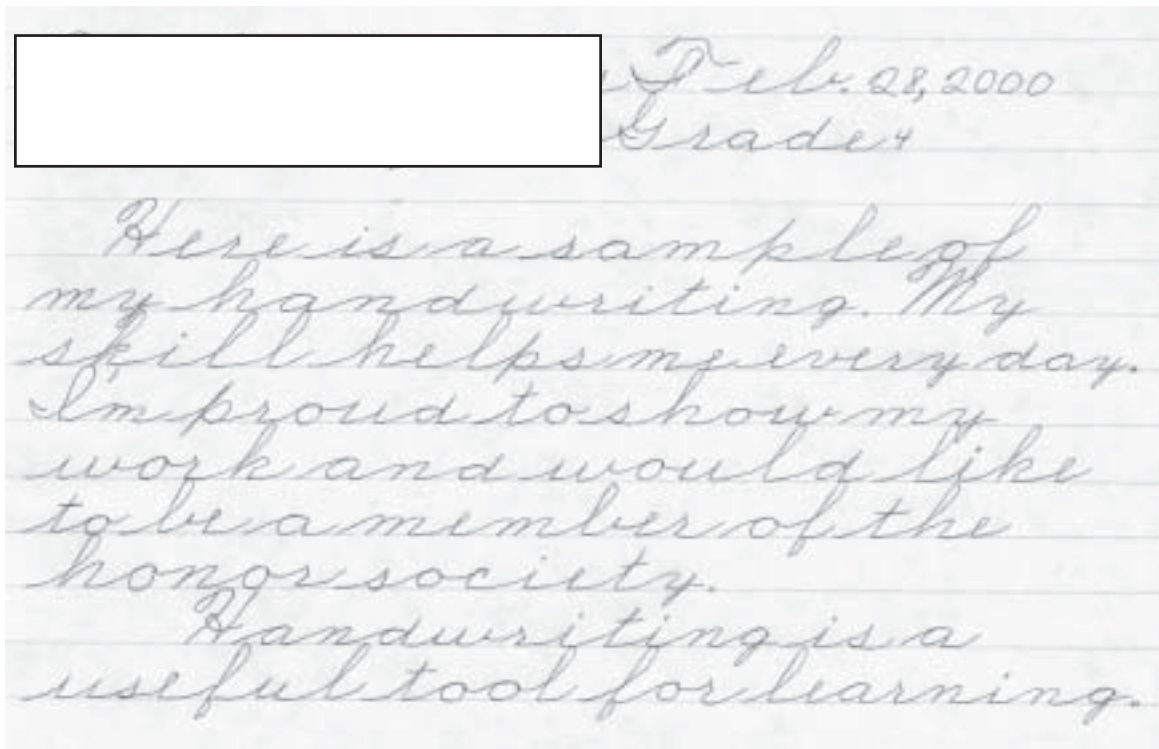 Feb. 28, 2000
Grade 4
Here is a sample of
my handwriting. My
skill helps me every day.
I'm proud to show my
work and would like
to be a member of the
honor society.
Handwriting is a
useful tool for learning.